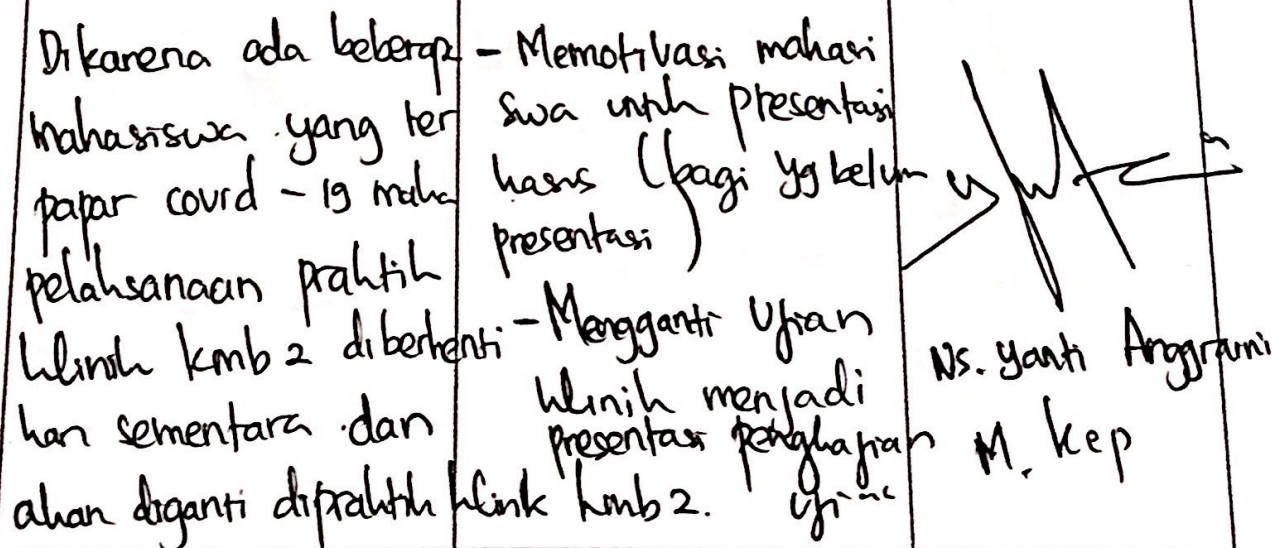 Dikarena ada beberapa
mahasiswa yang ter
papar covid - 19 maka
pelaksanaan praktik
klinik kmb 2 diberhenti
kan sementara dan
akan diganti dipraktik klink kmb 2.
- Memotivasi mahasi
swa untuk presentasi
kasus (bagi yg belum
presentasi)
- Mengganti Ujian
klinik menjadi
presentasi pengkajian
Ns. Yanti Anggraini
M. Kep